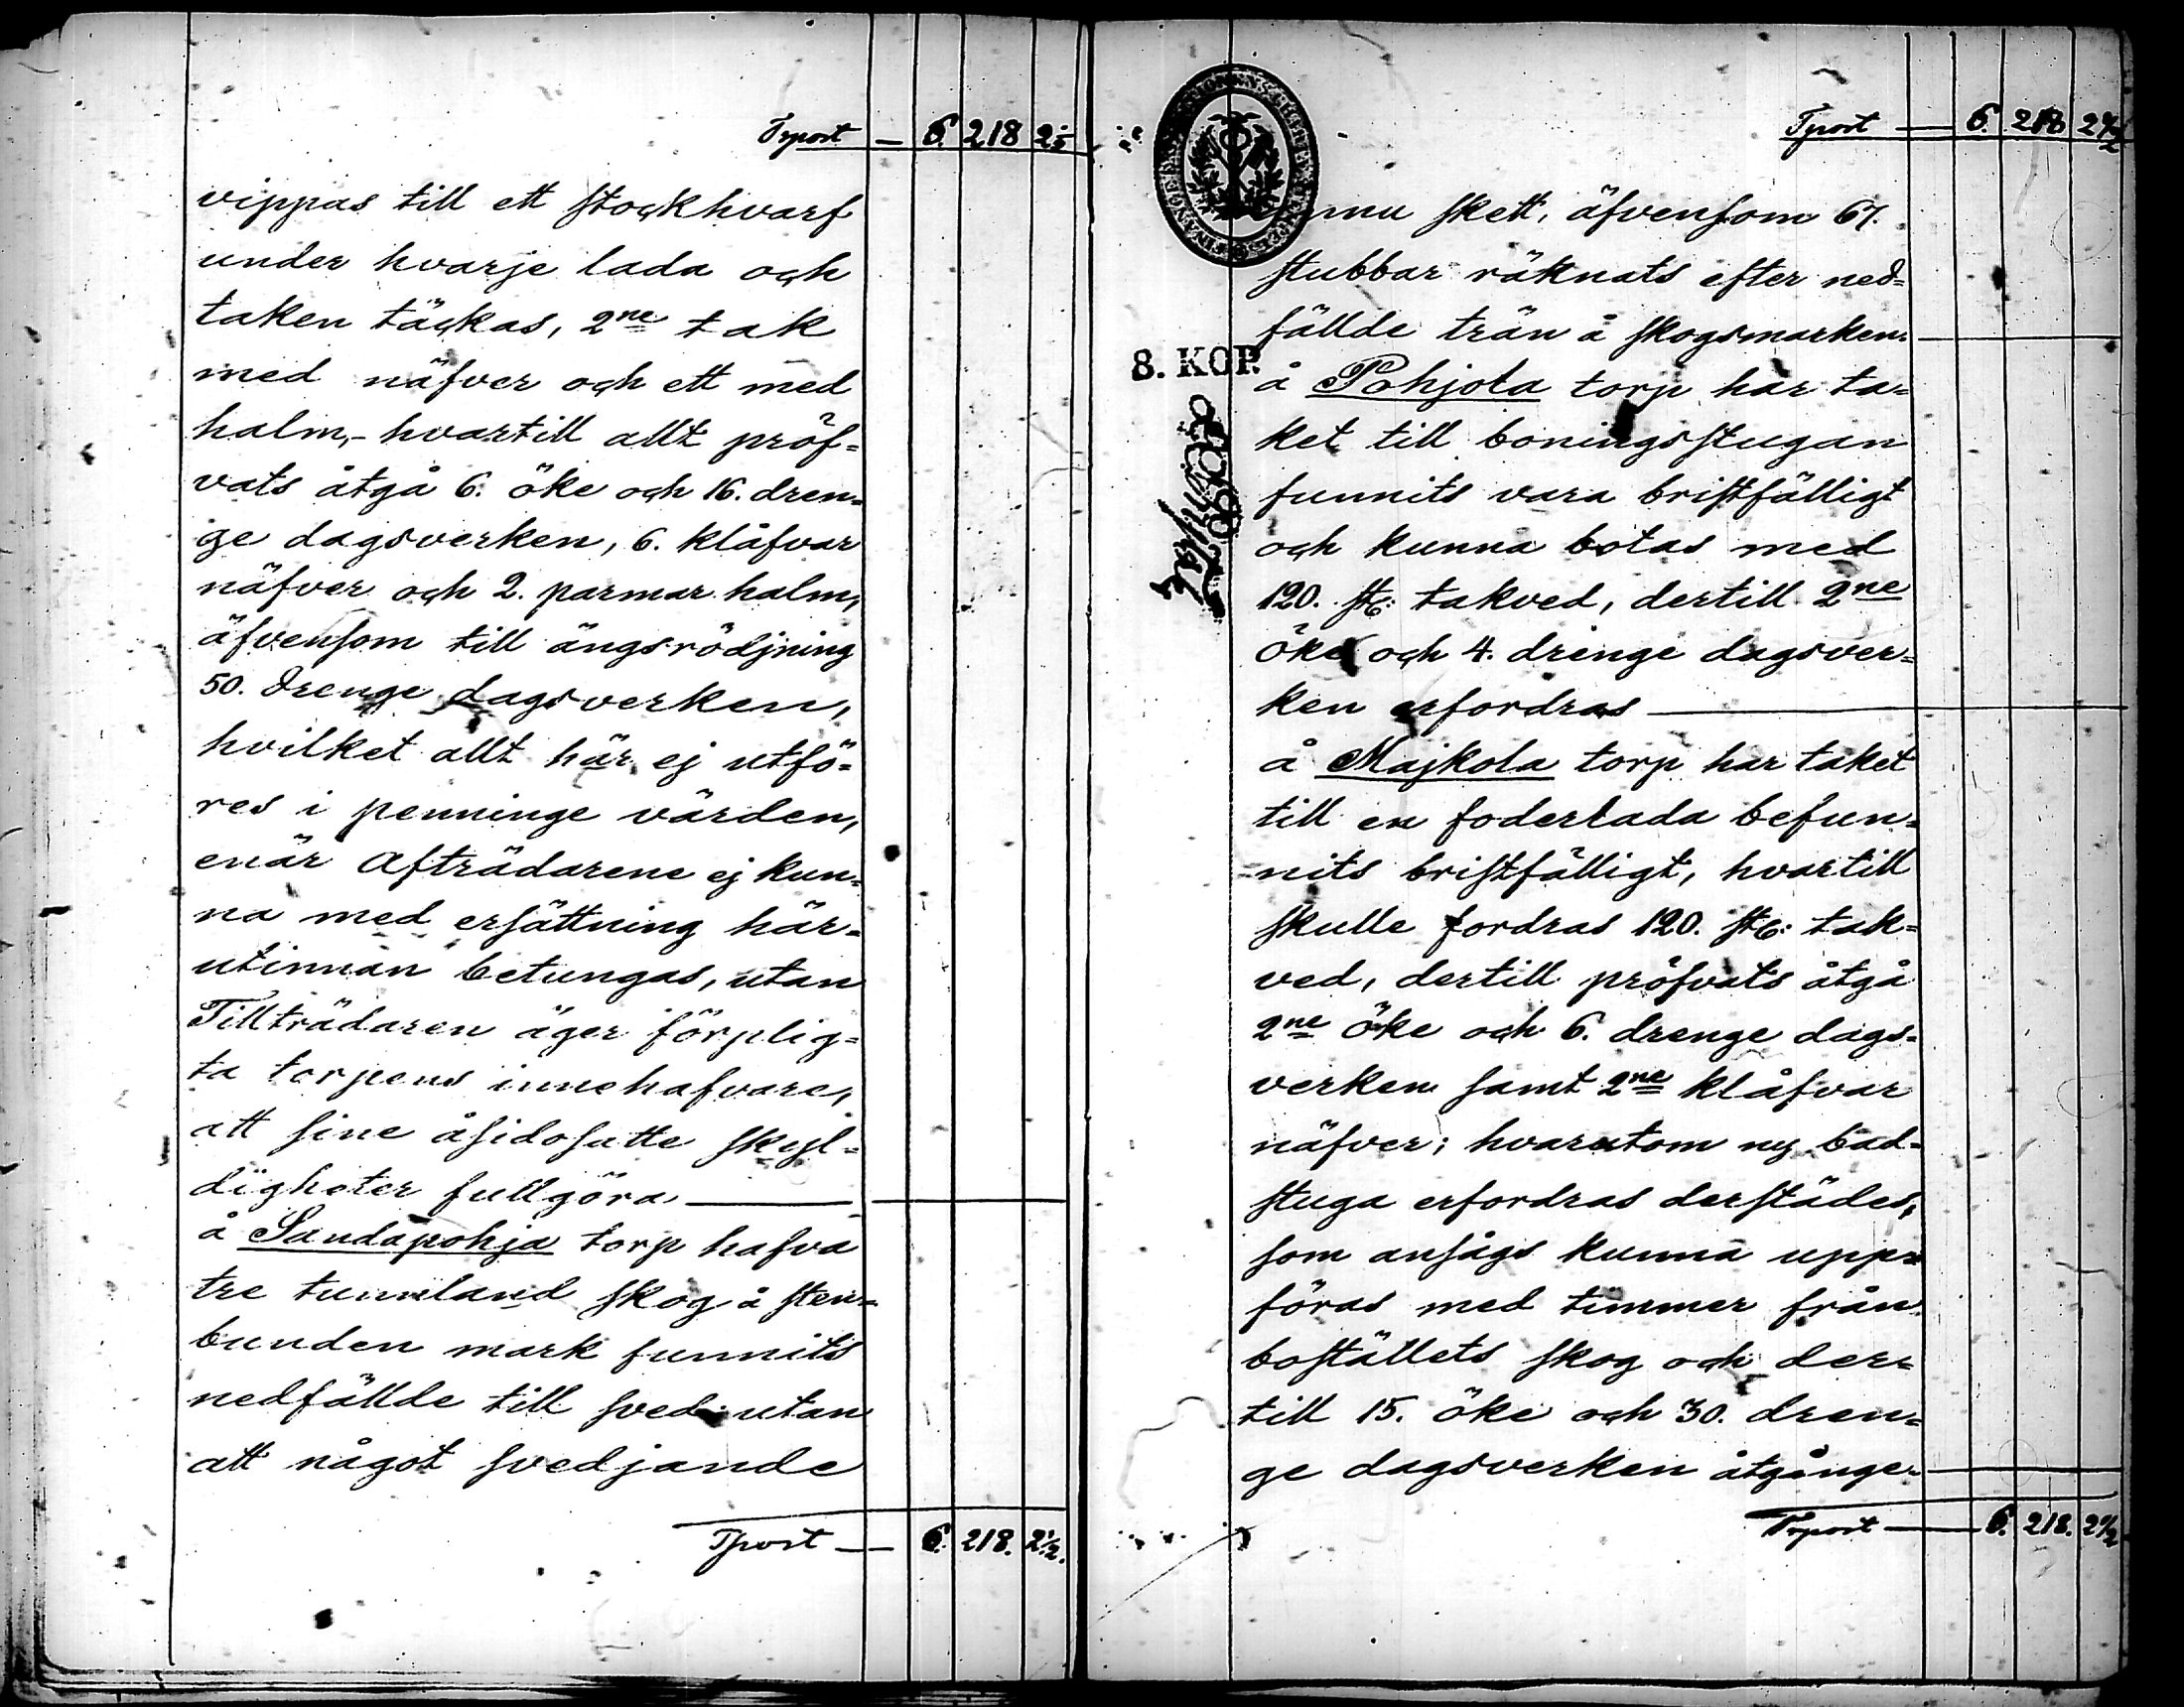 Trport — 6. 218 2½
vippas till ett stockhvarf
under hvarje lada och
taken täckas, 2ne tak
med näfver och ett med
halm,- hvartill allt pröf=
vats åtgå 6. öke och 16. dren=
ge dagsverken, 6. klåfvar
näfver och 2. parmar halm,
äfvensom till ängsrödjning
50. drenge dagsverken,
hvilket allt här ej utfö=
res i penninge värden,
enär Afträdarene ej kun=
na med ersättning här=
utinnan betungas, utan
Tillträdaren äger förplig=
ta torpens innehafvare,
att sine åsidosatte skyl=
digheter fullgöra —
å Sandapohja torp hafva
tre tunnland skog å sten=
bunden mark funnits
nedfällde till sved utan
att något svedjande
Trport — 6. 218. 2½.
Trport — 6. 218 2½
ännu skett, äfvensom 67.
stubbar räknats efter ned=
fällde trän å skogsmarken —
8. KOP.
å Pohjola torp har ta=
ket till boningsstugan
funnits vara bristfälligt
och kunna botas med
120. st: takved, dertill 2ne
öke och 4. drenge dagsver=
ken erfordras —
å Majkola torp har taket
till en foderlada befun=
nits bristfälligt, hvartill
skulle fordras 120. st: tak=
ved, dertill pröfvats åtgå
2ne öke och 6. drenge dags=
verken samt 2ne klåfvar
näfver; hvarutom ny bad=
stuga erfordras derstädes,
som ansågs kunna upp=
föras med timmer från
boställets skog och der=
till 15. öke och 30. dren=
ge dagsverken åtgånge —
Trport — 6. 218. 2½